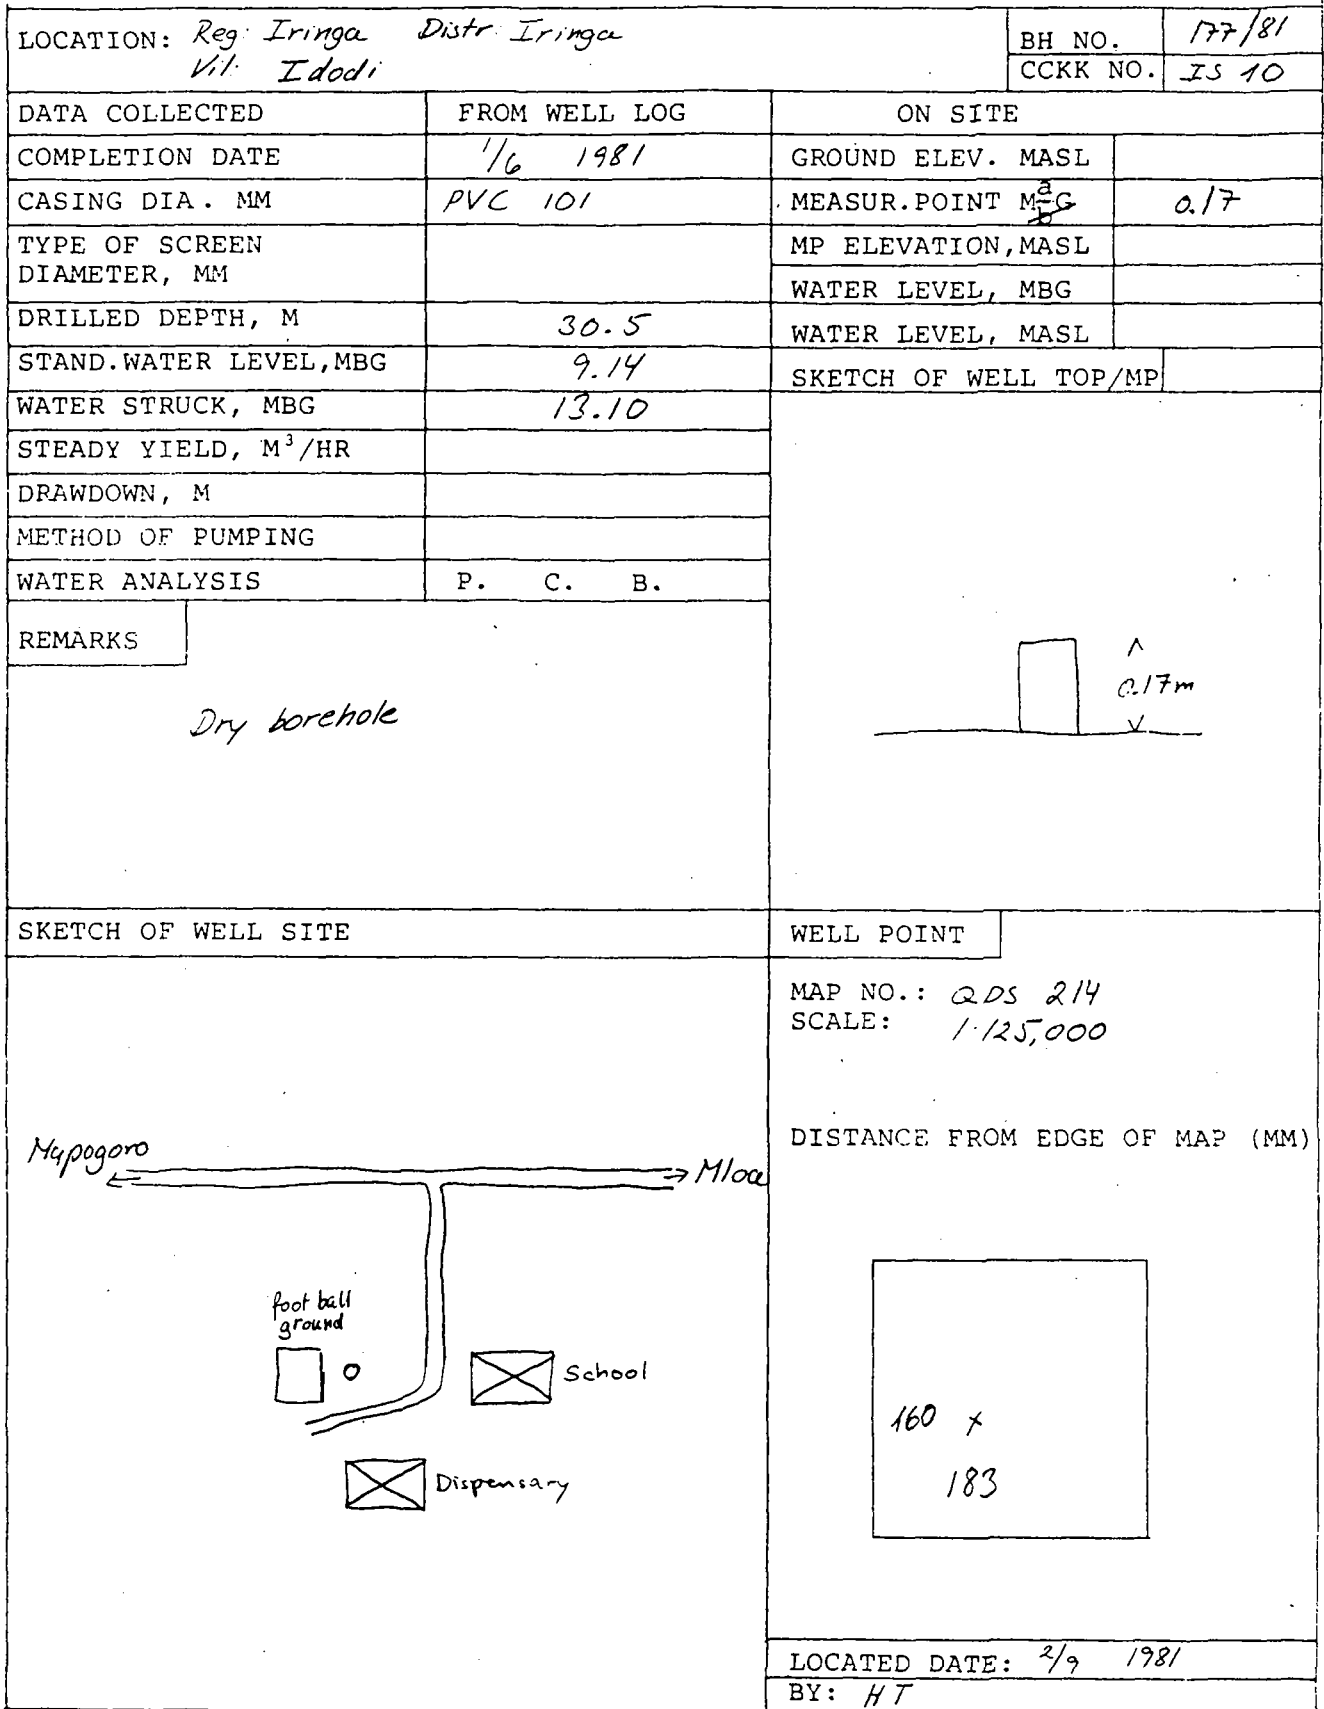 LOCATION: Reg: Iringa Distr: Iringa
Vil: Idodi
BH NO. 177/81
CCKK NO. IS 10
DATA COLLECTED FROM WELL LOG ON SITE
COMPLETION DATE 1/6 1981
CASING DIA. MM PVC 101
TYPE OF SCREEN
DIAMETER, MM
DRILLED DEPTH, M 30.5
STAND.WATER LEVEL,MBG 9.14
WATER STRUCK, MBG 13.10
STEADY YIELD, M³/HR
DRAWDOWN, M
METHOD OF PUMPING
WATER ANALYSIS P. C. B.
REMARKS
Dry borehole
GROUND ELEV. MASL
MEASUR.POINT M a/b G 0.17
MP ELEVATION,MASL
WATER LEVEL, MBG
WATER LEVEL, MASL
SKETCH OF WELL TOP/MP
0.17m
SKETCH OF WELL SITE
Mapogoro
Mloa
foot ball
ground
School
Dispensary
WELL POINT
MAP NO.: QDS 214
SCALE: 1:125,000
DISTANCE FROM EDGE OF MAP (MM)
160 x
183
LOCATED DATE: 2/9 1981
BY: HT